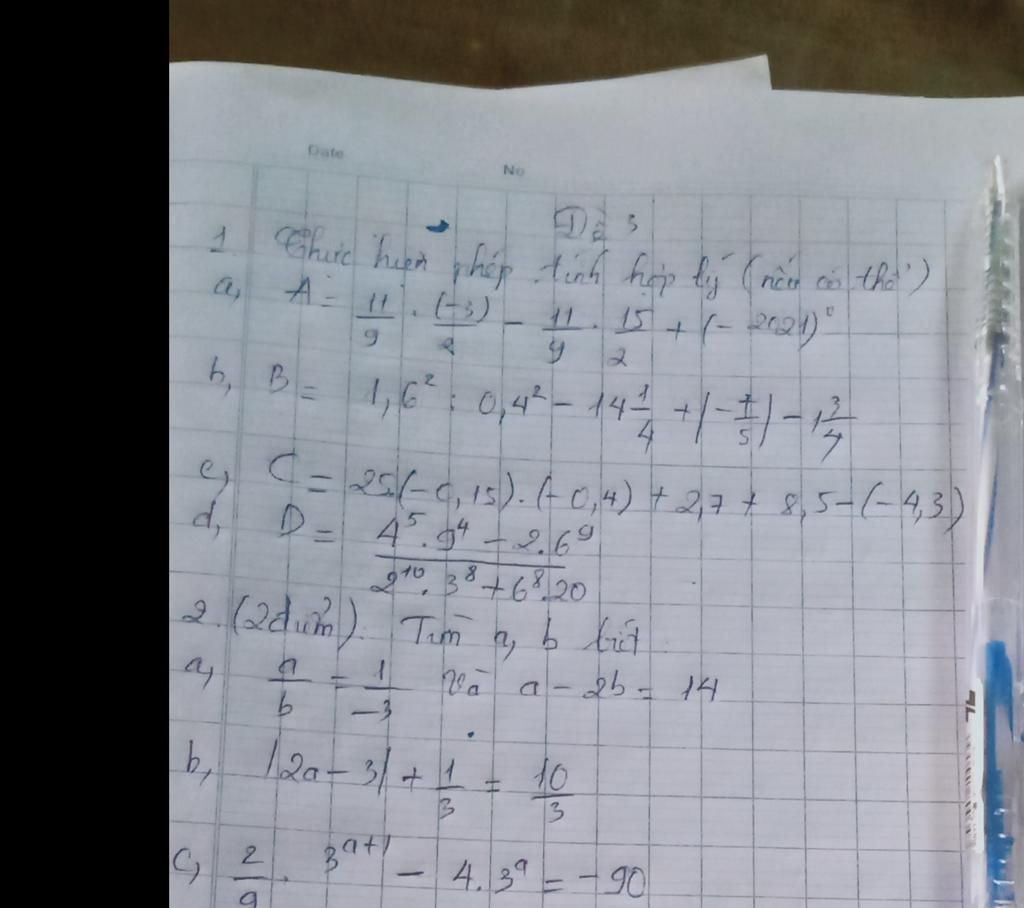 Date
No
Đề 3
1. Thực hiện phép tính hợp lý (nếu có thể)
a, A = \frac{11}{9} . \frac{(-3)}{2} - \frac{11}{9} . \frac{15}{2} + (-2021)^0
b, B = 1,6² : 0,4² - 14\frac{1}{4} + |-\frac{7}{5}| - 1\frac{3}{4}
c, C = 25.(-0,15).(-0,4) + 2,7 + 8,5 - (-4,3)
d, D = \frac{4^5 . 9^4 - 2.6^9}{2^{10} . 3^8 + 6^8.20}
2. (2điểm). Tìm a, b biết
a, \frac{a}{b} = \frac{1}{-3} và a - 2b = 14
b, |2a - 3| + \frac{1}{3} = \frac{10}{3}
c, \frac{2}{9} . 3^{a+1} - 4.3^a = -90